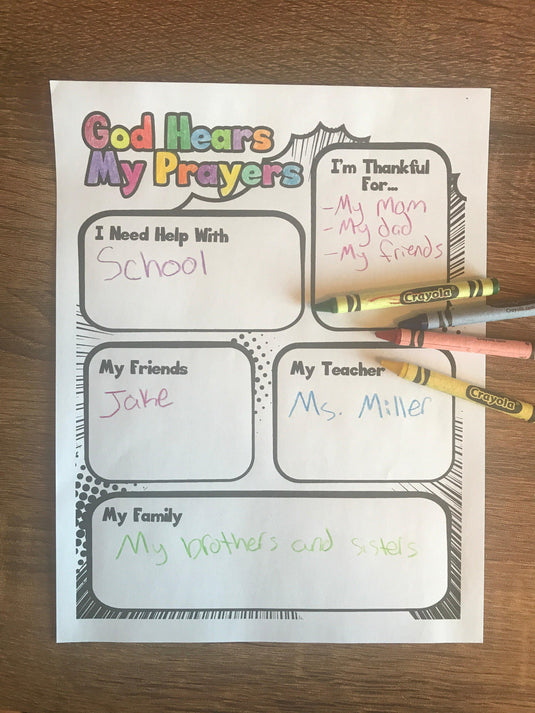 God Hears
My Prayers
I'm Thankful
For...
-My Mom
-My dad
-My friends
I Need Help With
School
Crayola
My Friends
Jake
My Teacher
Ms. Miller
Crayola
My Family
My brothers and sisters